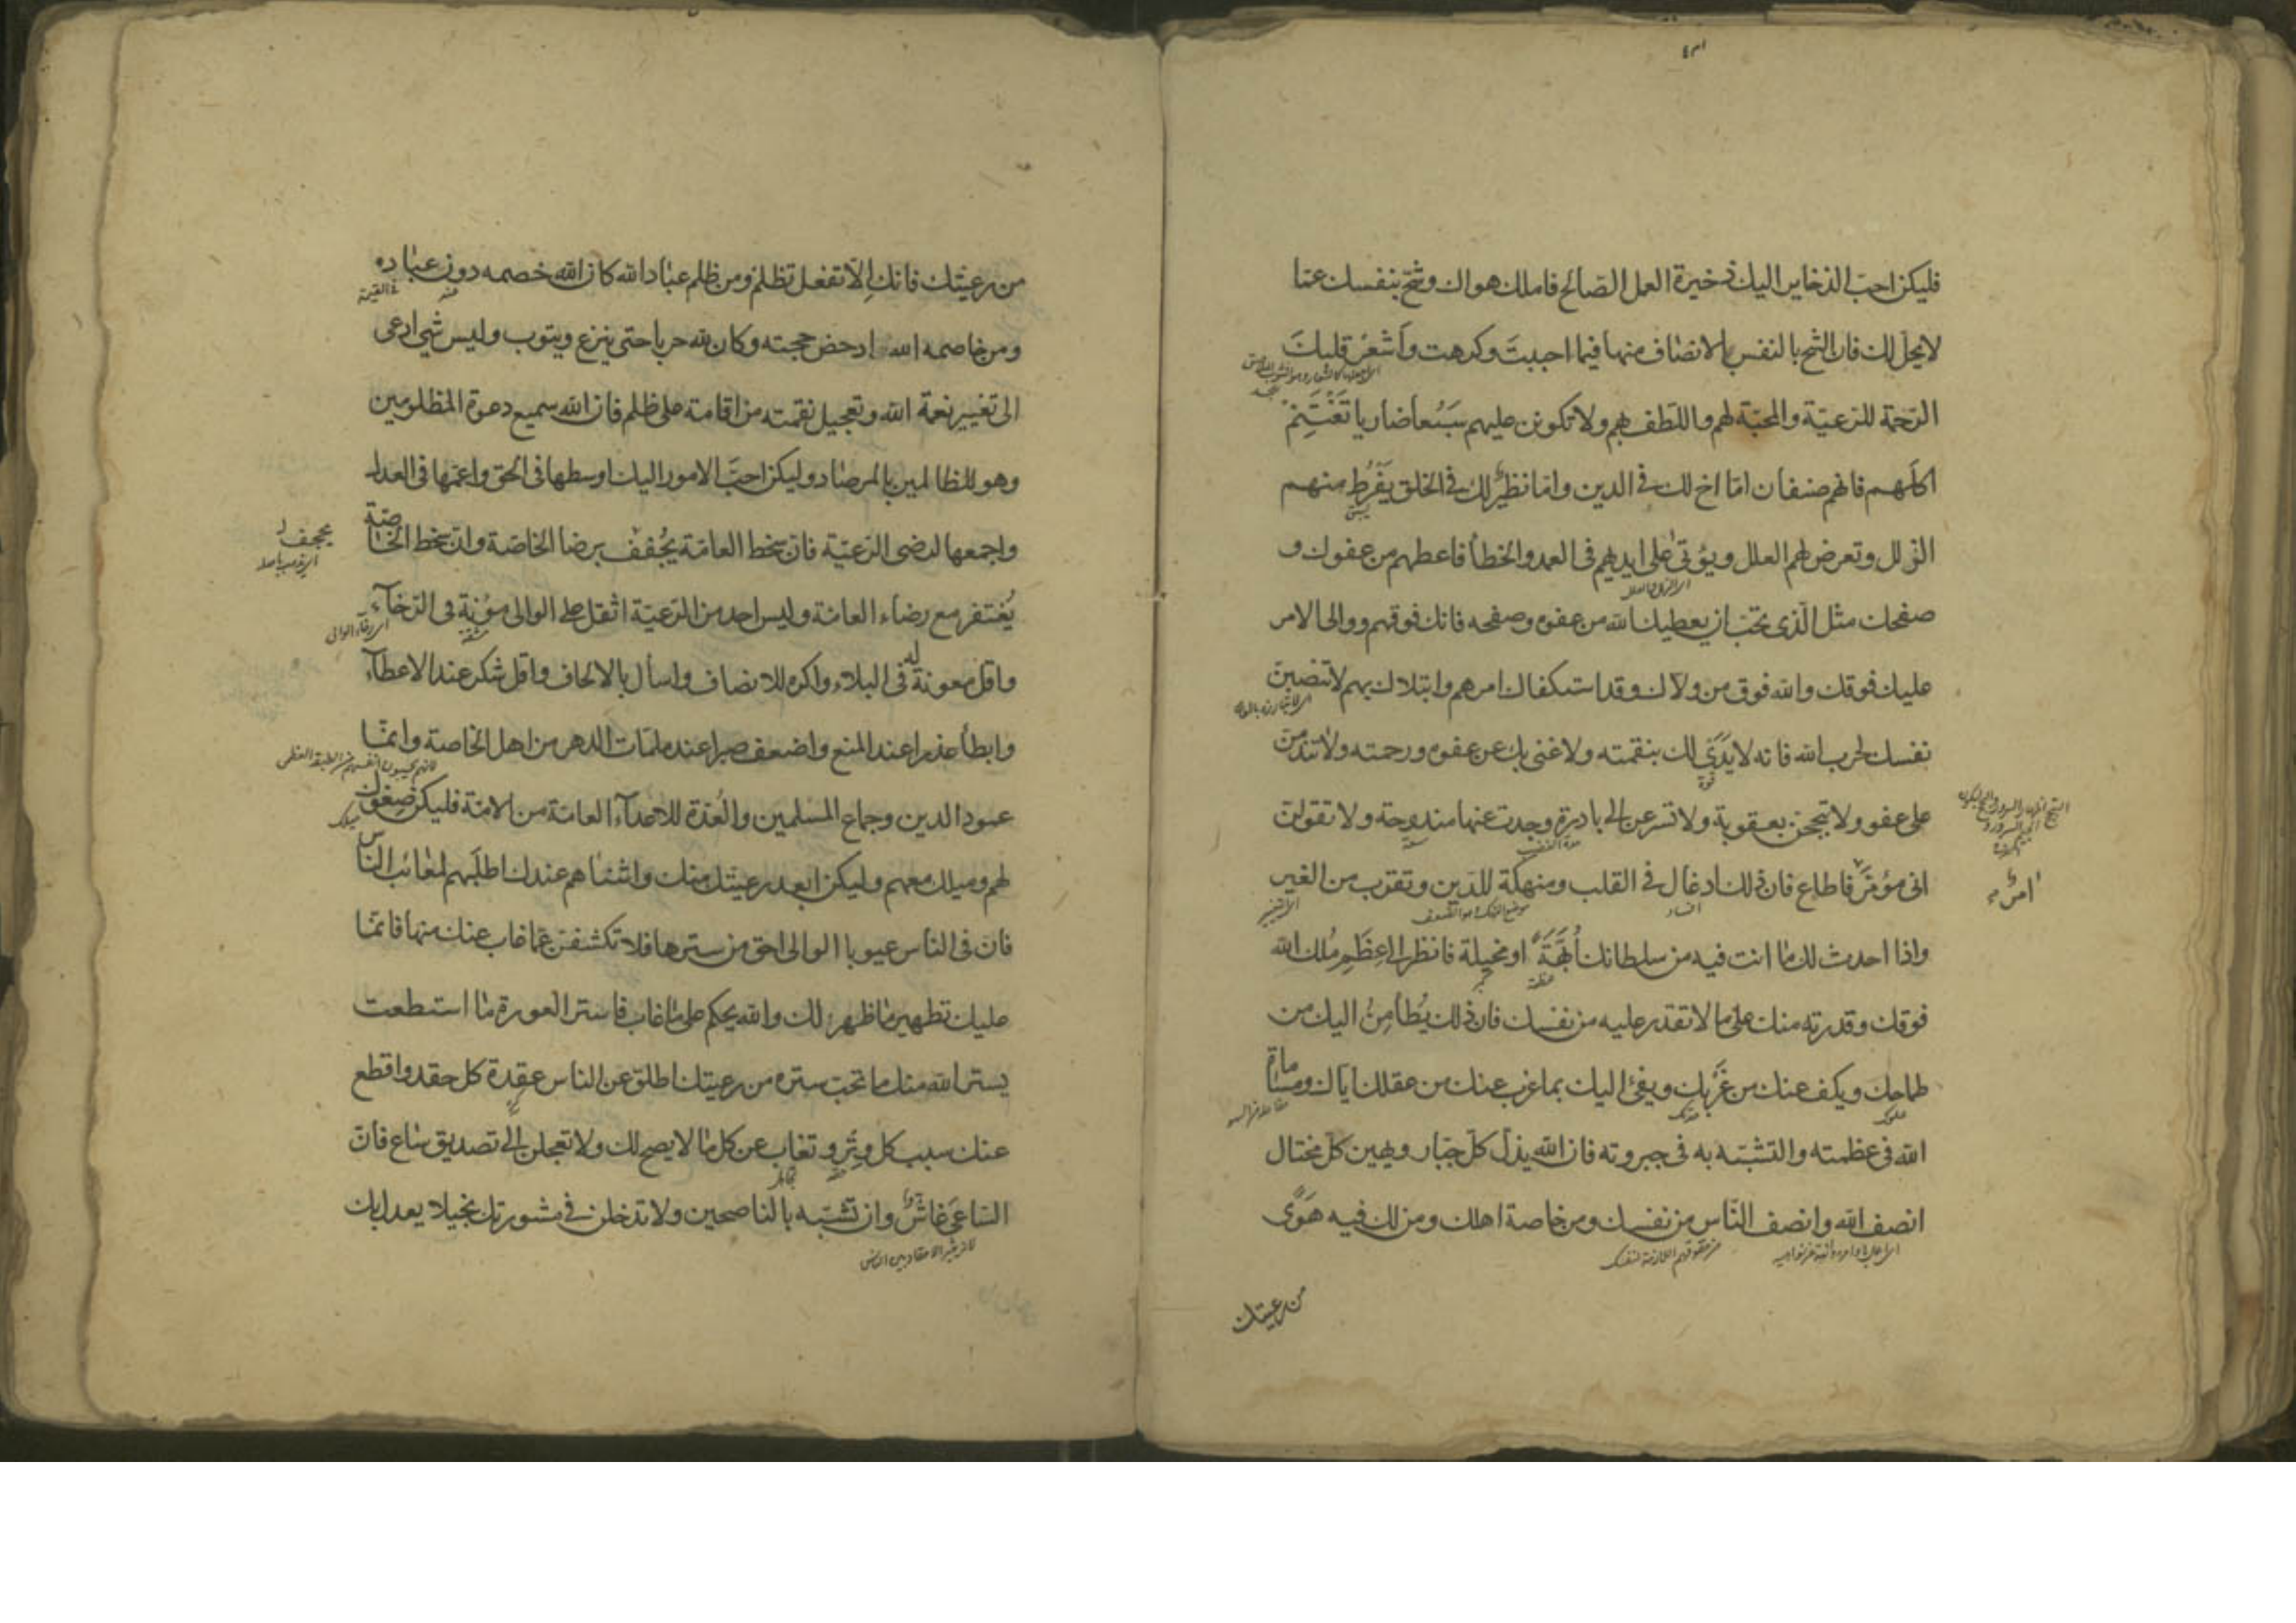 فليكن احب الذخاير اليك ذخيرة العمل الصالح فاملك هواك وشح بنفسك عما
لا يحل لك فان الشح بالنفس الانصاف منها فيما احببت وكرهت وأشعر قلبك
الرحمة للرعية والمحبة لهم واللطف بهم ولا تكونن عليهم سبعا ضاريا تغتنم
اكلهم فانهم صنفان اما اخ لك في الدين واما نظير لك في الخلق يفرط منهم
يسبق
الزلل وتعرض لهم العلل ويؤتى على ايديهم في العمد والخطأ فاعطهم من عفوك و
صفحك مثل الذي تحب ان يعطيك الله من عفوه وصفحه فانك فوقهم ووالى الامر
عليك فوقك والله فوق من ولاك وقد استكفاك امرهم وابتلاك بهم لا تنصبن
نفسك لحرب الله فانه لا يدى لك بنقمته ولا غنى بك عن عفوه ورحمته ولا تندمن
قوة
على عفو ولا تبجحن بعقوبة ولا تسرعن الى بادرة وجدت عنها مندوحة ولا تقولن
انى مؤمر فاطاع فان ذلك ادغال في القلب ومنهكة للدين وتقرب من الغير
امرء
الفساد
واذا احدث لك ما انت فيه من سلطانك أبهة او مخيلة فانظر الى عظم ملك الله
عظمة
فوقك وقدرته منك على ما لا تقدر عليه من نفسك فان ذلك يطامن اليك من
طماحك ويكف عنك من غربك ويفئ اليك بما عزب عنك من عقلك اياك ومساماة
الله في عظمته والتشبه به في جبروته فان الله يذل كل جبار ويهين كل مختال
انصف الله وانصف الناس من نفسك ومن خاصة اهلك ومن لك فيه هوى
من رعيتك
من رعيتك فانك الا تفعل تظلم ومن ظلم عباد الله كان الله خصمه دون عباده
ومن خاصمه الله ادحض حجته وكان لله حربا حتى ينزع ويتوب وليس شئ ادعى
الى تغيير نعمة الله وتعجيل نقمته من اقامة على ظلم فان الله سميع دعوة المظلومين
وهو للظالمين بالمرصاد وليكن احب الامور اليك اوسطها في الحق واعمها في العدل
واجمعها لرضى الرعية فان سخط العامة يجحف برضا الخاصة وان سخط الخاصة
يجحف
يغتفر مع رضاء العامة وليس احد من الرعية اثقل على الوالى مؤنة في الرخاء
مشقة
واقل معونة له في البلاء واكره للانصاف واسأل بالالحاف واقل شكر عند الاعطاء
وابطأ عذرا عند المنع واضعف صبرا عند ملمات الدهر من اهل الخاصة وانما
عمود الدين وجماع المسلمين والعدة للاعداء العامة من الامة فليكن صغوك
ميلك
لهم وميلك معهم وليكن ابعد رعيتك منك واشناهم عندك اطلبهم لمعائب الناس
فان في الناس عيوبا الوالى احق من سترها فلا تكشفن عما غاب عنك منها فانما
عليك تطهير ما ظهر لك والله يحكم على ما غاب فاستر العورة ما استطعت
يستر الله منك ما تحب ستره من رعيتك اطلق عن الناس عقدة كل حقد واقطع
عنك سبب كل وتر وتغاب عن كل ما لا يصح لك ولا تعجلن الى تصديق ساع فان
الساعى غاش وان تشبه بالناصحين ولا تدخلن في مشورتك بخيلا يعدل بك